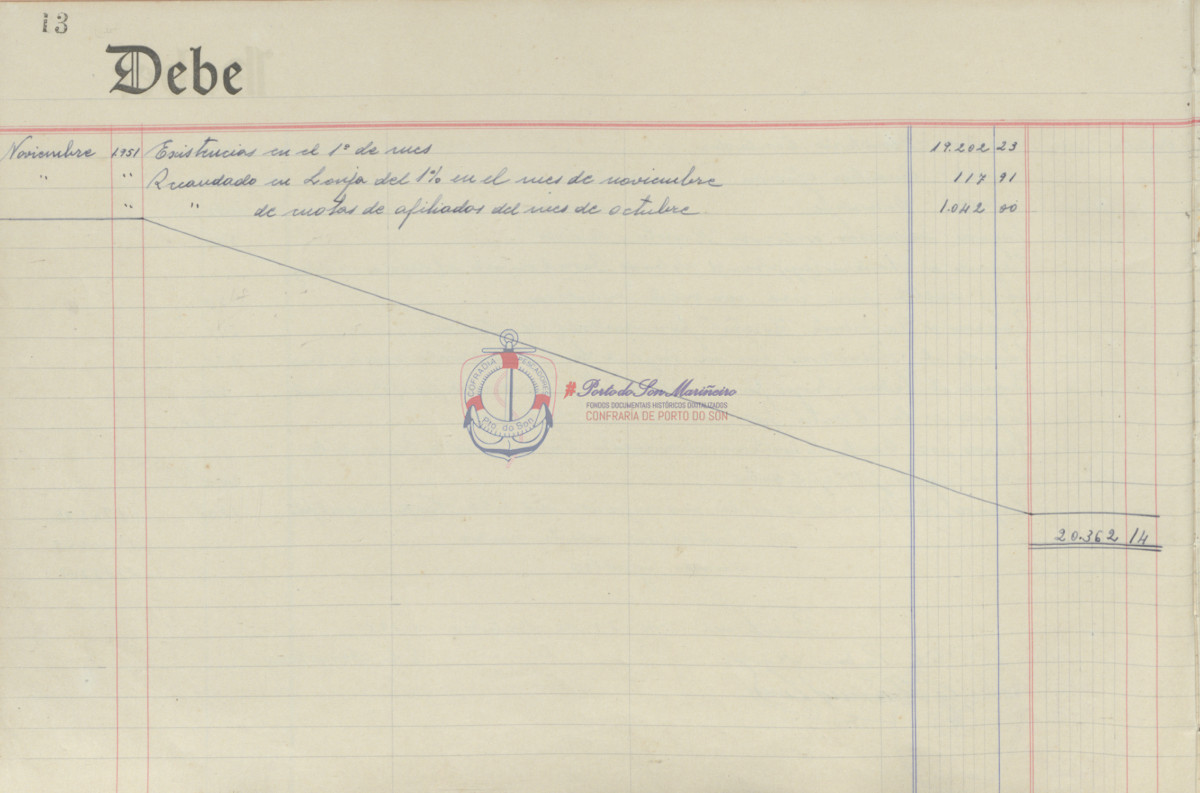 13
Debe
Noviembre 1951 Existencias en el 1º de mes 19.202 23
" " Recaudado en Lonja del 1% en el mes de noviembre 117 91
" " de cuotas de afiliados del mes de octubre 1.042 00
COFRADIA PESCADORES
Pto. do Son
#Porto do Son Mariñeiro
FONDOS DOCUMENTAIS HISTÓRICOS DIXITALIZADOS
CONFRARÍA DE PORTO DO SON
20.362 14